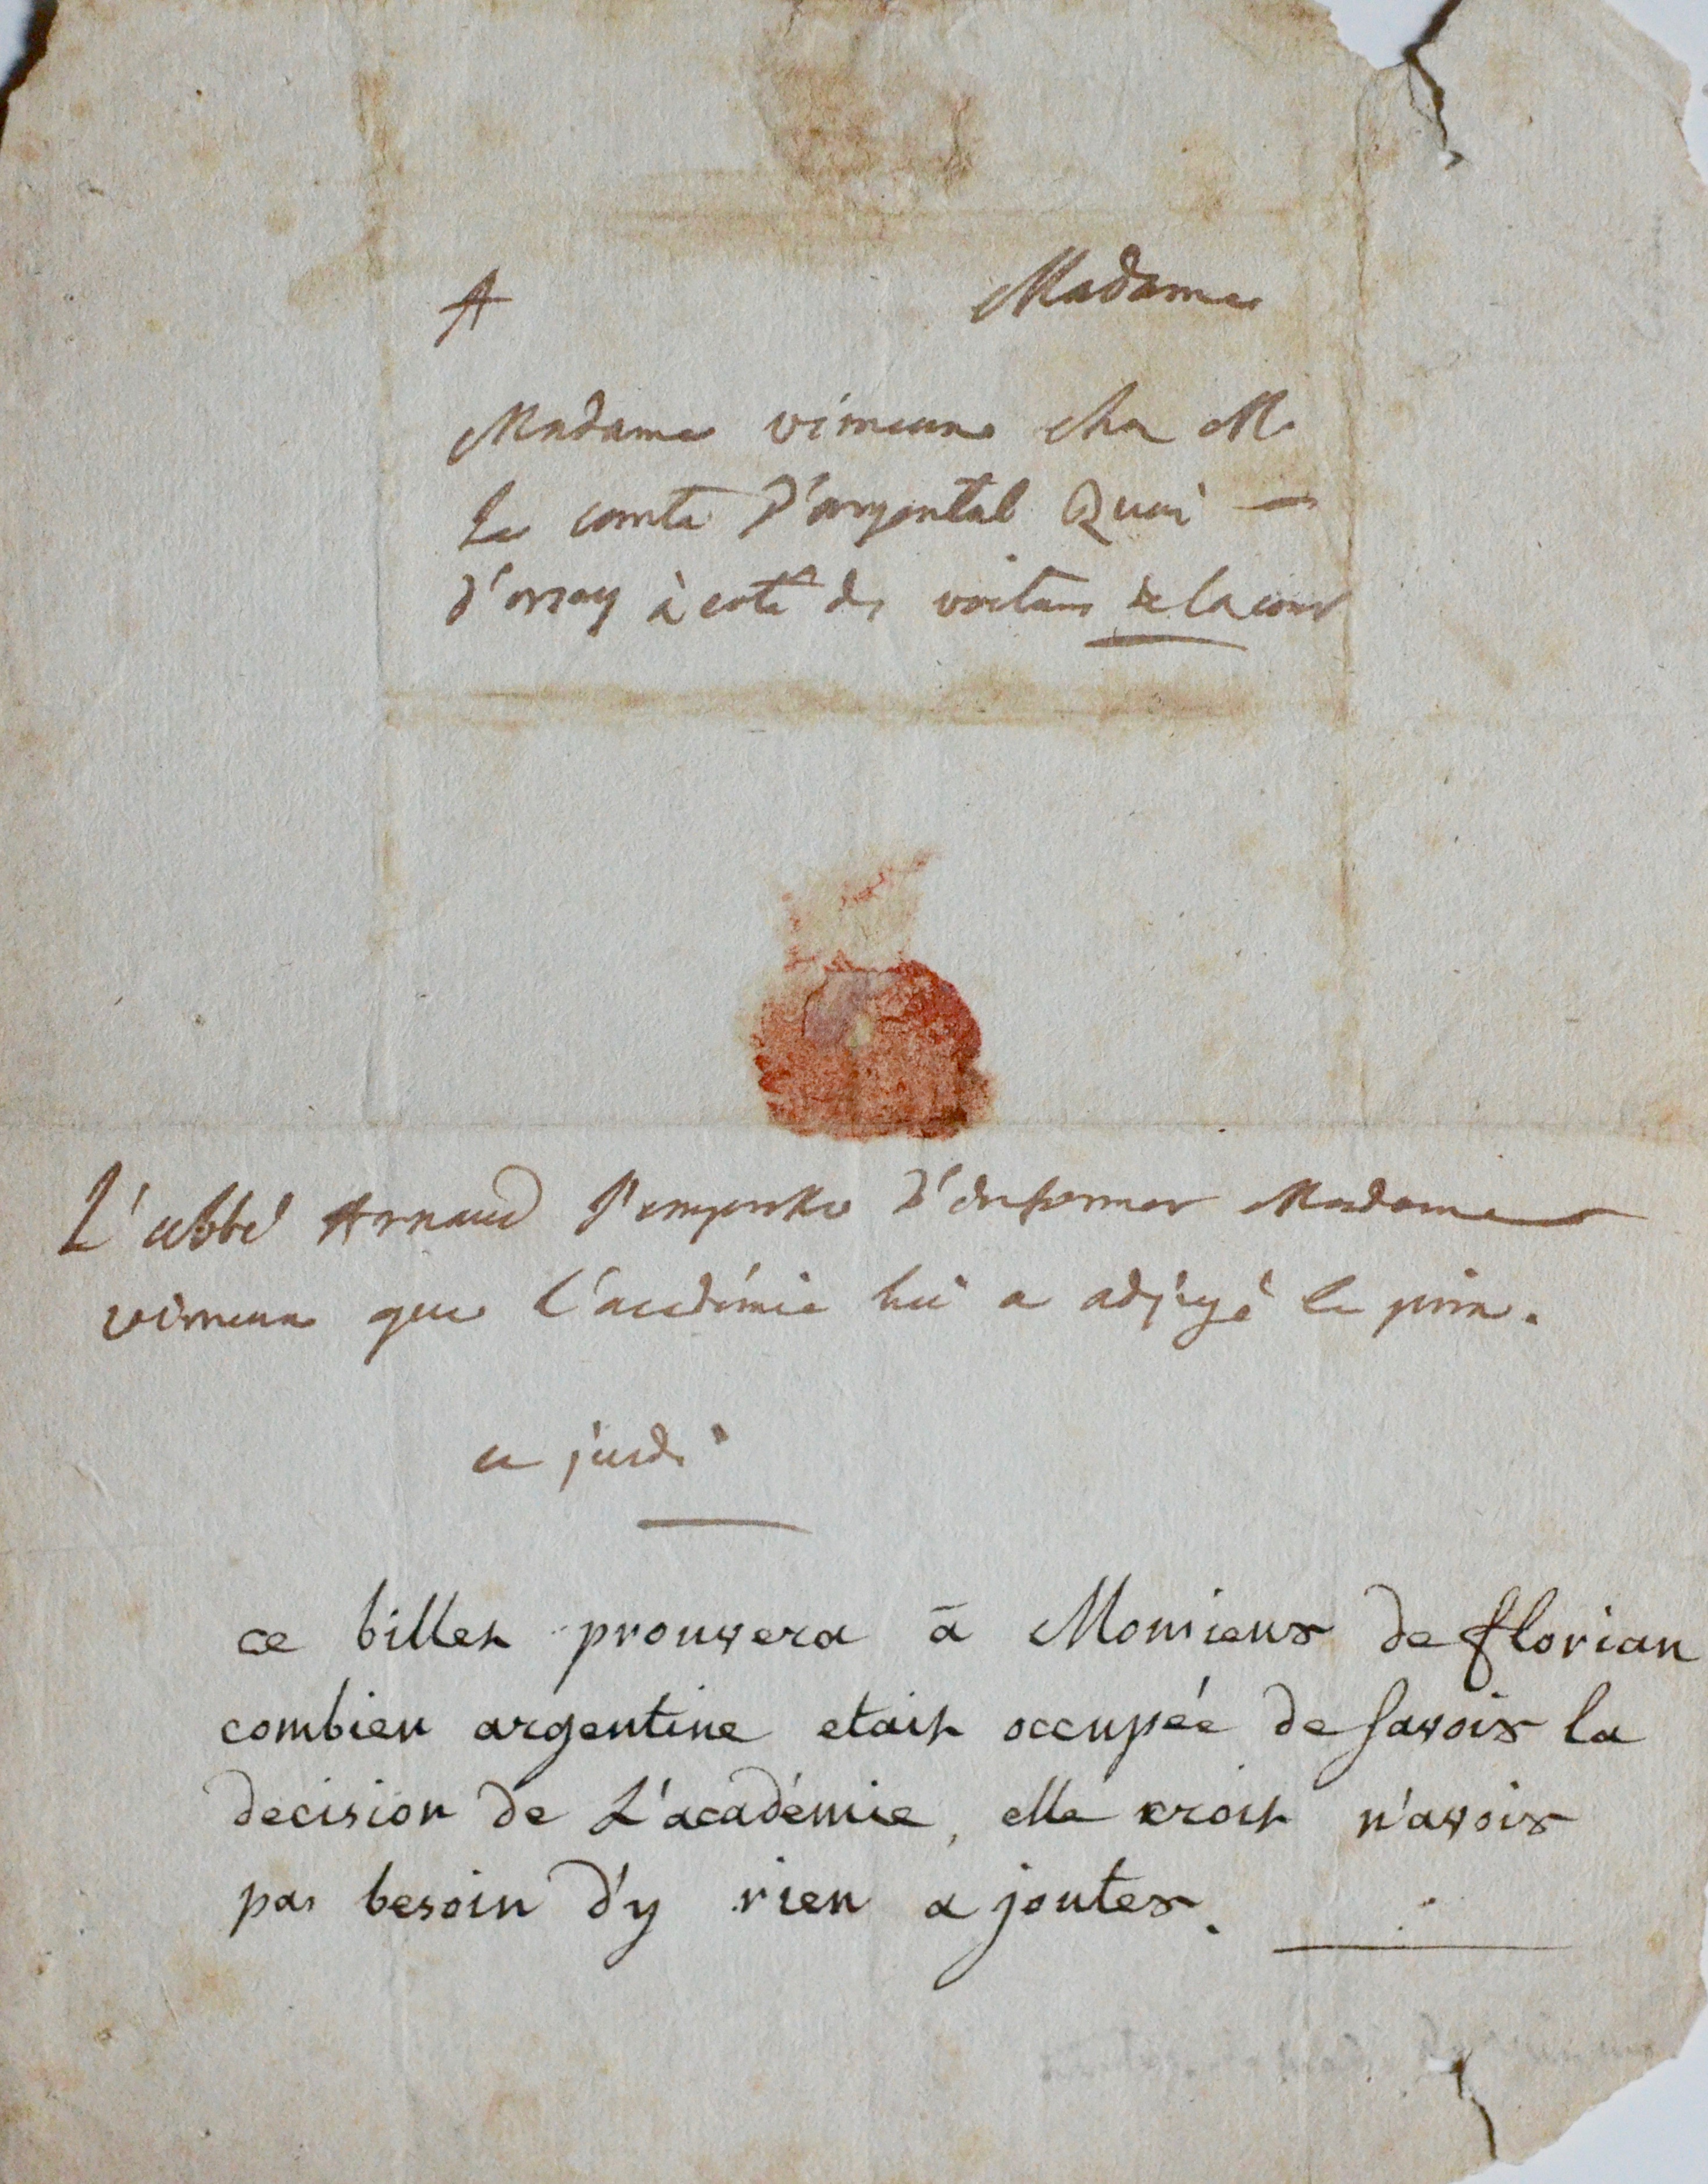 A Madame
Madame vimeux chez M.
Le comte D'argental Quai
D'orsay à coté des voitures de la cour
L'abbé Arnaud s'empresse D'informer Madame
vimeux que l'académie lui a adjugé le prix.
ce jeudi
ce billet prouvera à Monsieur de florian
combien argentine etait occupée de savoir la
decision de L'académie, elle croit n'avoir
pas besoin d'y rien ajouter.